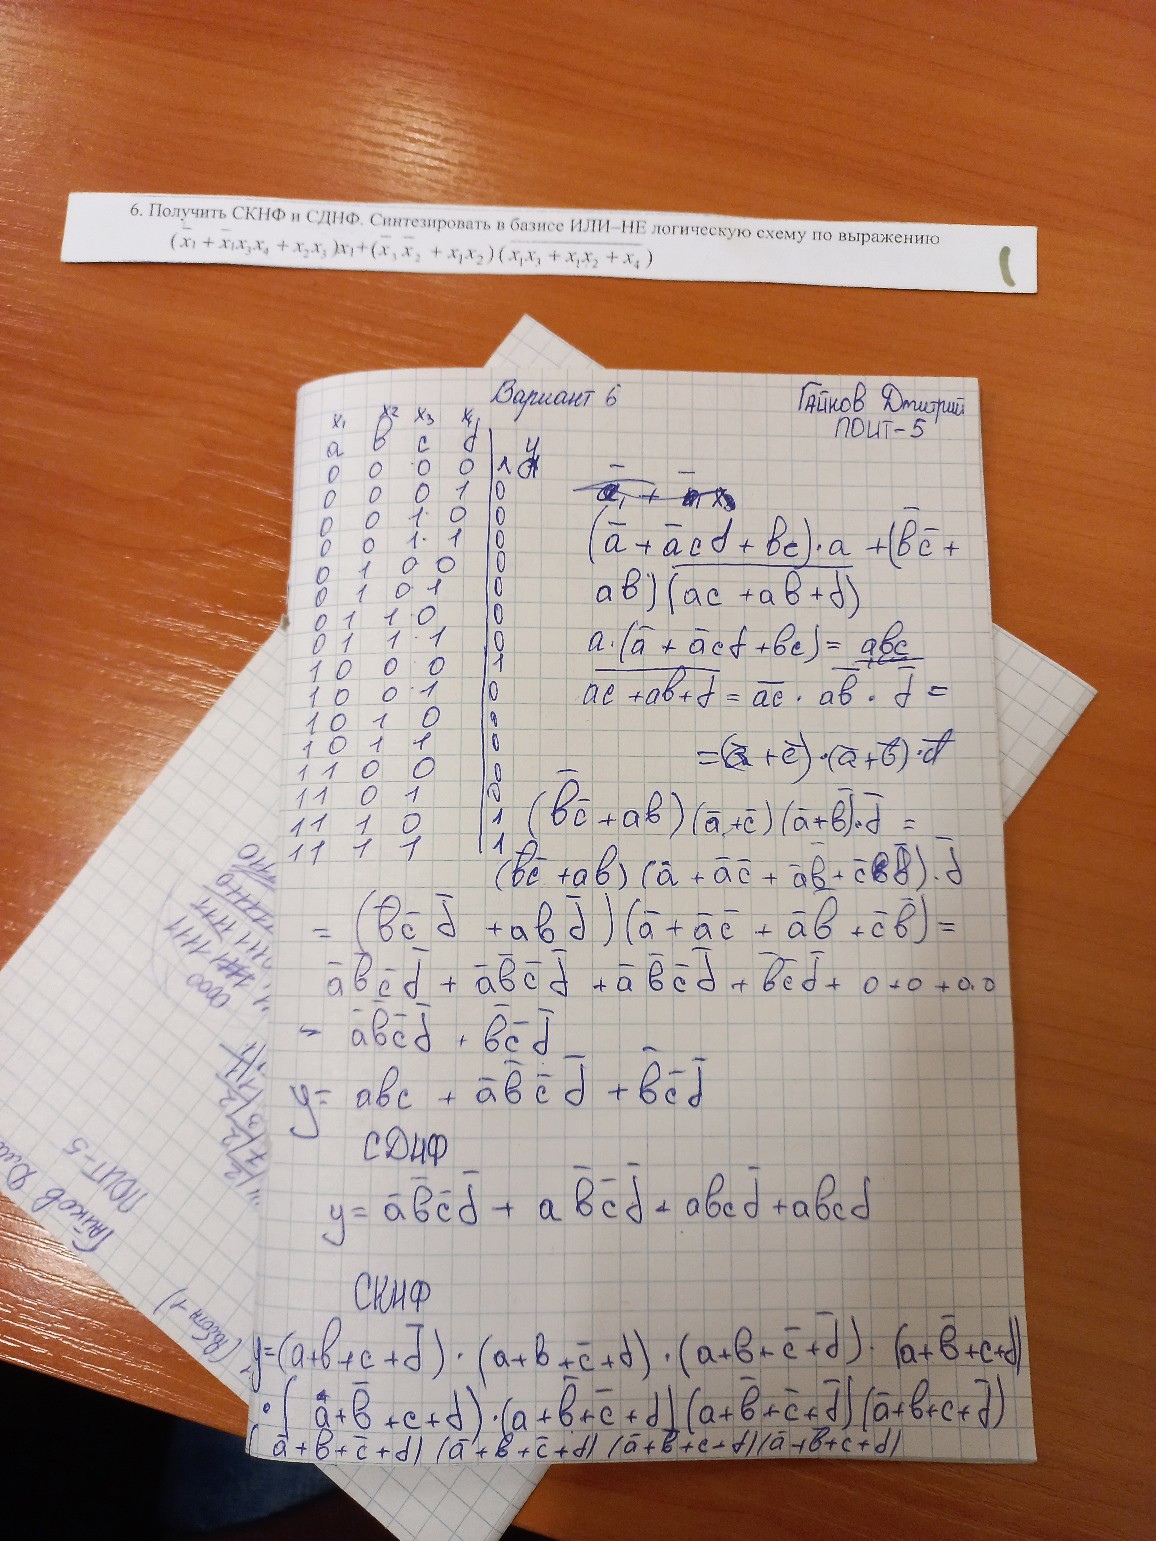 6. Получить СКНФ и СДНФ. Синтезировать в базисе ИЛИ–НЕ логическую схему по выражению
(x̅₁ + x̅₁x₃x₄ + x₂x₃)x₁+(x̅₃x̅₂ + x₁x₂)(x̅₁x̅₃̅ ̅+̅ ̅x̅₁x̅₂̅ ̅+̅ ̅x̅₄)
Вариант 6
Гайков Дмитрий
ПОИТ-5
x₁ x₂ x₃ x₄
a b c d y
0 0 0 0 1
0 0 0 1 0
0 0 1 0 0
0 0 1 1 0
0 1 0 0 0
0 1 0 1 0
0 1 1 0 0
0 1 1 1 0
1 0 0 0 1
1 0 0 1 0
1 0 1 0 0
1 0 1 1 0
1 1 0 0 0
1 1 0 1 0
1 1 1 0 1
1 1 1 1 1
(a̅ + a̅cd + bc)·a + (b̅c̅ +
ab)(ac + ab + d)
a·(a̅ + a̅cd + bc) = abc
ac + ab + d = a̅c̅ · a̅b̅ · d̅ =
= (a̅ + c̅)·(a̅ + b̅)·d̅
(b̅c̅ + ab)(a̅ + c̅)(a̅ + b̅)·d̅ =
(b̅c̅ + ab)(a̅ + a̅c̅ + a̅b̅ + c̅b̅)·d̅
= (b̅c̅d̅ + abd̅)(a̅ + a̅c̅ + a̅b̅ + c̅b̅) =
a̅b̅c̅d̅ + a̅b̅c̅d̅ + a̅b̅c̅d̅ + b̅c̅d̅ + 0 + 0 + 0.0
= a̅b̅c̅d̅ + b̅c̅d̅
y = abc + a̅b̅c̅d̅ + b̅c̅d̅
СДНФ
y = a̅b̅c̅d̅ + ab̅c̅d̅ + abcd̅ + abcd
СКНФ
y=(a+b+c+d̅)·(a+b+c̅+d)·(a+b+c̅+d̅)·(a+b̅+c+d)
·(a+b̅+c+d)·(a+b̅+c̅+d)(a+b̅+c̅+d̅)(a̅+b+c+d̅)
(a̅+b+c̅+d)(a̅+b+c̅+d)(a̅+b̅+c+d)(a̅+b̅+c+d)
ПОИТ-5